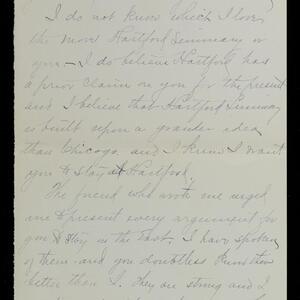 I do not know which I love
the more Hartford Seminary or
you - I do believe Hartford has
a prior claim on you for the present
and I believe that Hartford Seminary
is built upon a grander idea
than Chicago, and I know I want
you to stay at Hartford.
The friend who wrote me urged
me to present every argument for
you to stay in the East. I have spoken
of them and you doubtless know them
better than I. They are strong and I